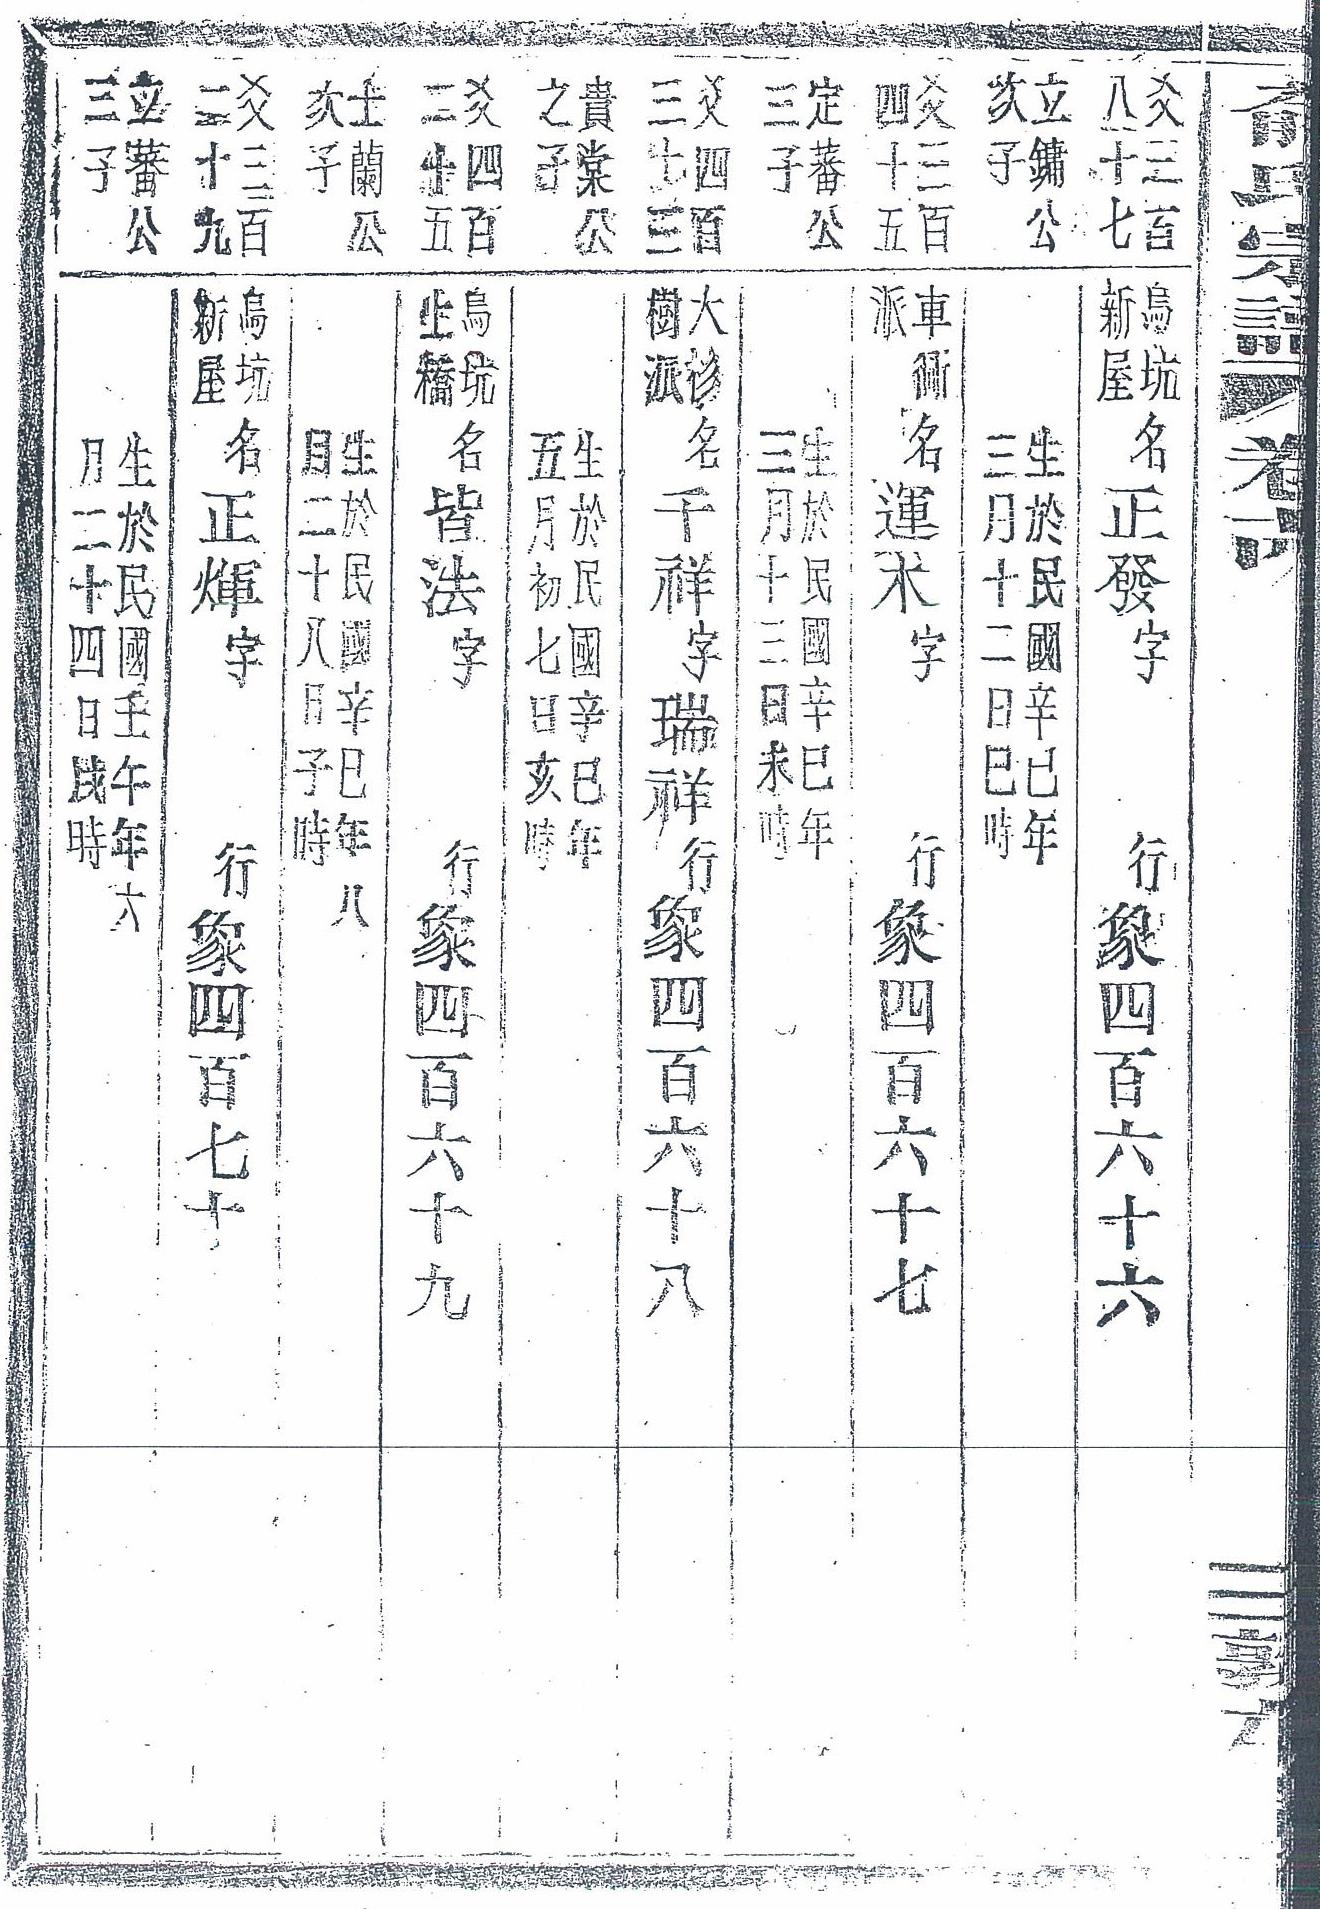 宗譜 卷
爻三百
八十七
立鏞公
次子
烏坑
新屋
名正發字 行象四百六十六
生於民國辛巳年
三月十二日巳時
爻三百
四十五
定蕃公
三子
車衕
派
名運木字 行象四百六十七
生於民國辛巳年
三月十三日未時
爻四百
三十三
貴棠公
之子
大杉
樹派
名千祥字瑞祥行象四百六十八
生於民國辛巳年
五月初七日亥時
爻四百
二十五
士蘭公
次子
烏坑
上橋
名皆法字 行象四百六十九
生於民國辛巳年八
月二十八日子時
爻三百
二十九
立蕃公
三子
烏坑
新屋
名正煇字 行象四百七十
生於民國壬午年六
月二十四日戌時